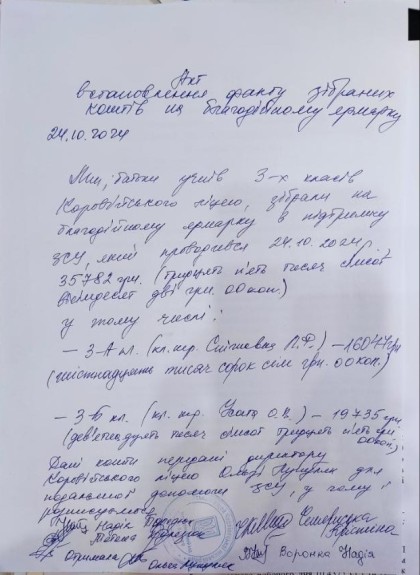 Акт
встановлення факту зібраних
коштів на благодійному ярмарку
24.10.2024
Ми, батьки учнів 3-х класів
ліцею, зібрали на
благодійному ярмарку в підтримку
ЗСУ, який проводився 24.10.2024,
35782 грн. (тридцять п'ять тисяч сімсот
вісімдесят дві грн. 00 коп.)
у тому числі:
– 3-А кл. (кл. кер. Л.Ф.) – 16047 грн
(шістнадцять тисяч сорок сім грн. 00 коп.)
– 3-Б кл. (кл. кер. О.В.) – 19735 грн.
(дев'ятнадцять тисяч сімсот тридцять п'ять грн. 00 коп)
Дані кошти передані директору
ліцею Ользі для
подальшої допомоги ЗСУ, у чому і
розписуємось
Надія
Тетяна
Отримала Ольга
Воронка Надія